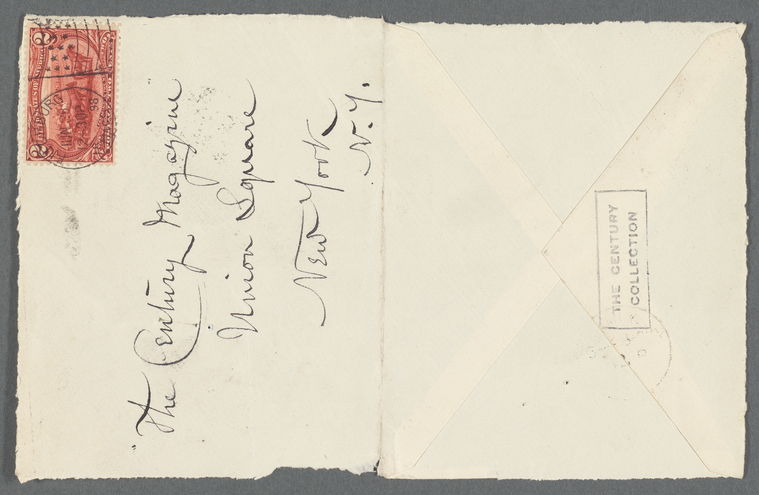 The Century Magazine
Union Square
New York
N.Y.
THE CENTURY
COLLECTION
2
2
98